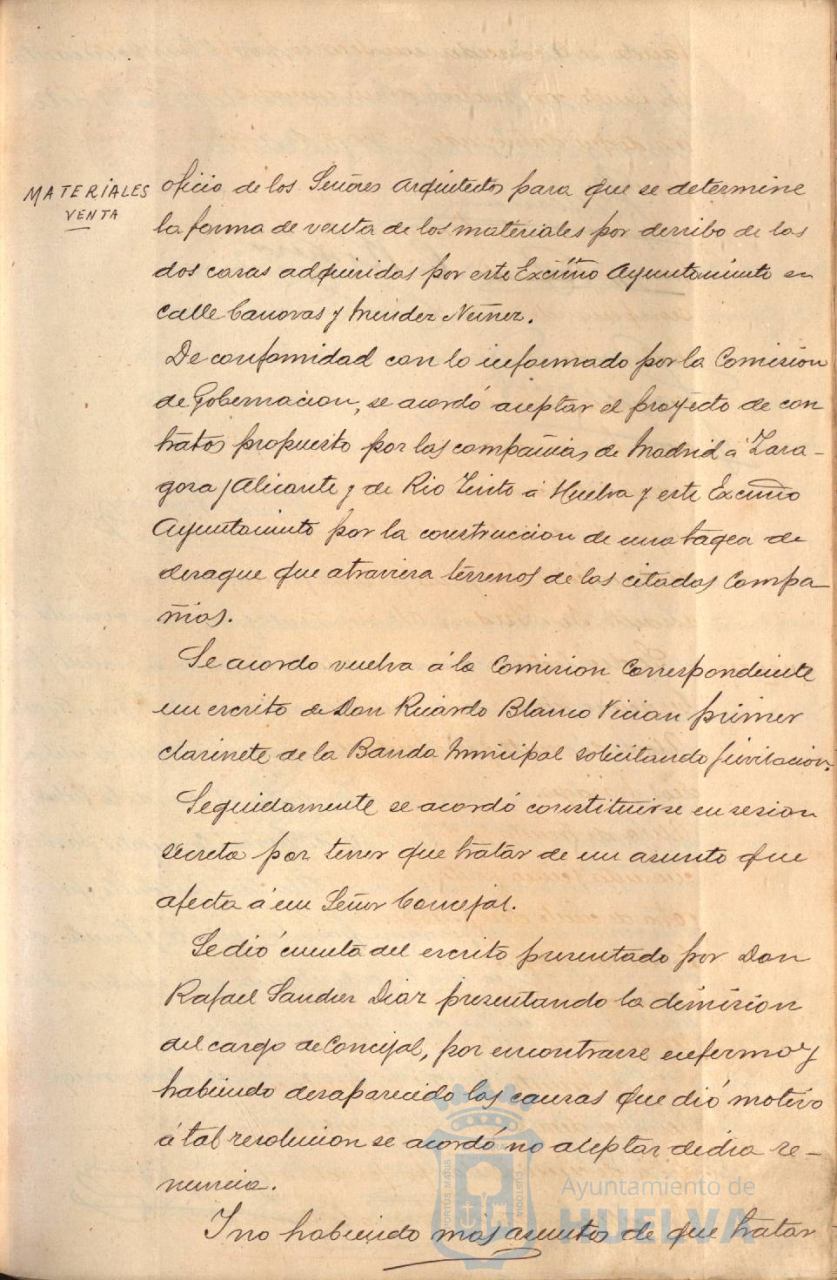 MATERIALES
VENTA
oficio de los Señores Arquitectos para que se determine
la forma de venta de los materiales por derribo de las
dos casas adquiridas por este Excmo Ayuntamiento en
calle Canovas y Mendez Nuñez.
De conformidad con lo informado por la Comision
de Gobernacion, se acordó aceptar el proyecto de con
tratos propuesto por las compañias de Madrid á Zara-
goza y Alicante y de Rio Tinto á Huelva y este Excmo
Ayuntamiento por la construccion de una tagea de
desague que atraviesa terrenos de las citadas Compa-
ñias.
Se acordo vuelva á la Comision Correspondiente
un escrito de Don Ricardo Blanco Vician primer
clarinete de la Banda Municipal solicitando jubilacion.
Seguidamente se acordó constituirse en sesion
secreta por tener que tratar de un asunto que
afecta á un Señor Concejal.
Se dió cuenta del escrito presentado por Don
Rafael Sanches Diaz presentando la dimision
del cargo de Concejal, por encontrarse enfermo y
habiendo desaparecido las causas que dió motivo
á tal resolucion se acordó no aceptar dicha re-
nuncia.
Y no habiendo más asuntos de que tratar
Ayuntamiento de
HUELVA